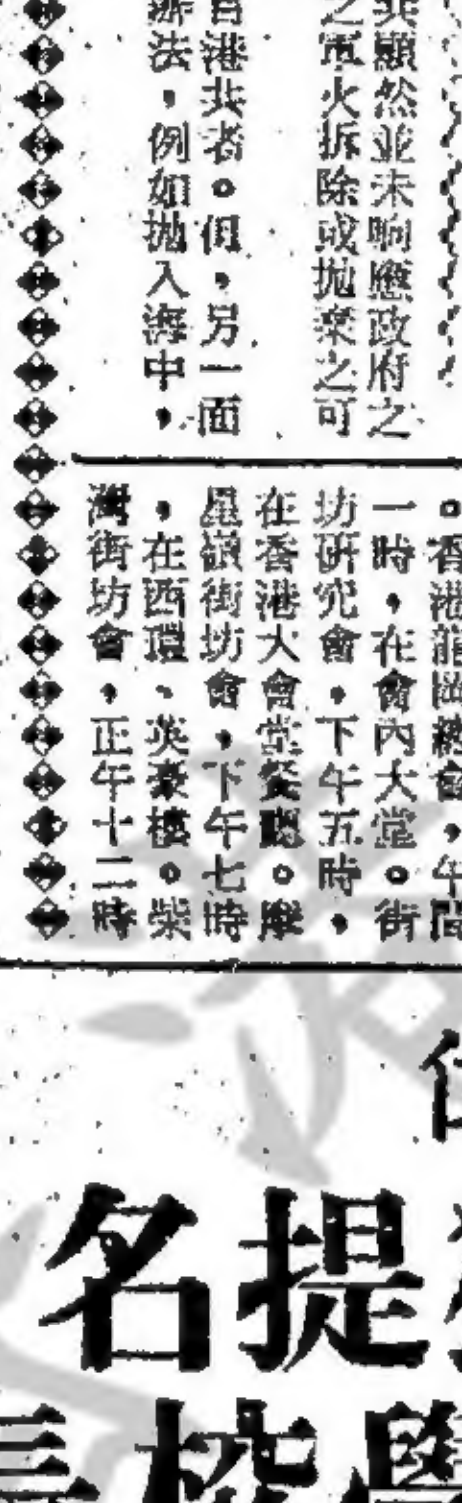 共顯然並未响應政府之
之軍火拆除或拋棄之可
港共者。但，另一面
辦法，例如拋入海中，
。香港龍岡總會，午間
一時，在會內大堂。街
坊研究會，下午五時，
在香港大會堂餐廳。摩
星嶺街坊會，下午七時
，在西環、英豪樓。柴
灣街坊會，正午十二時
提名